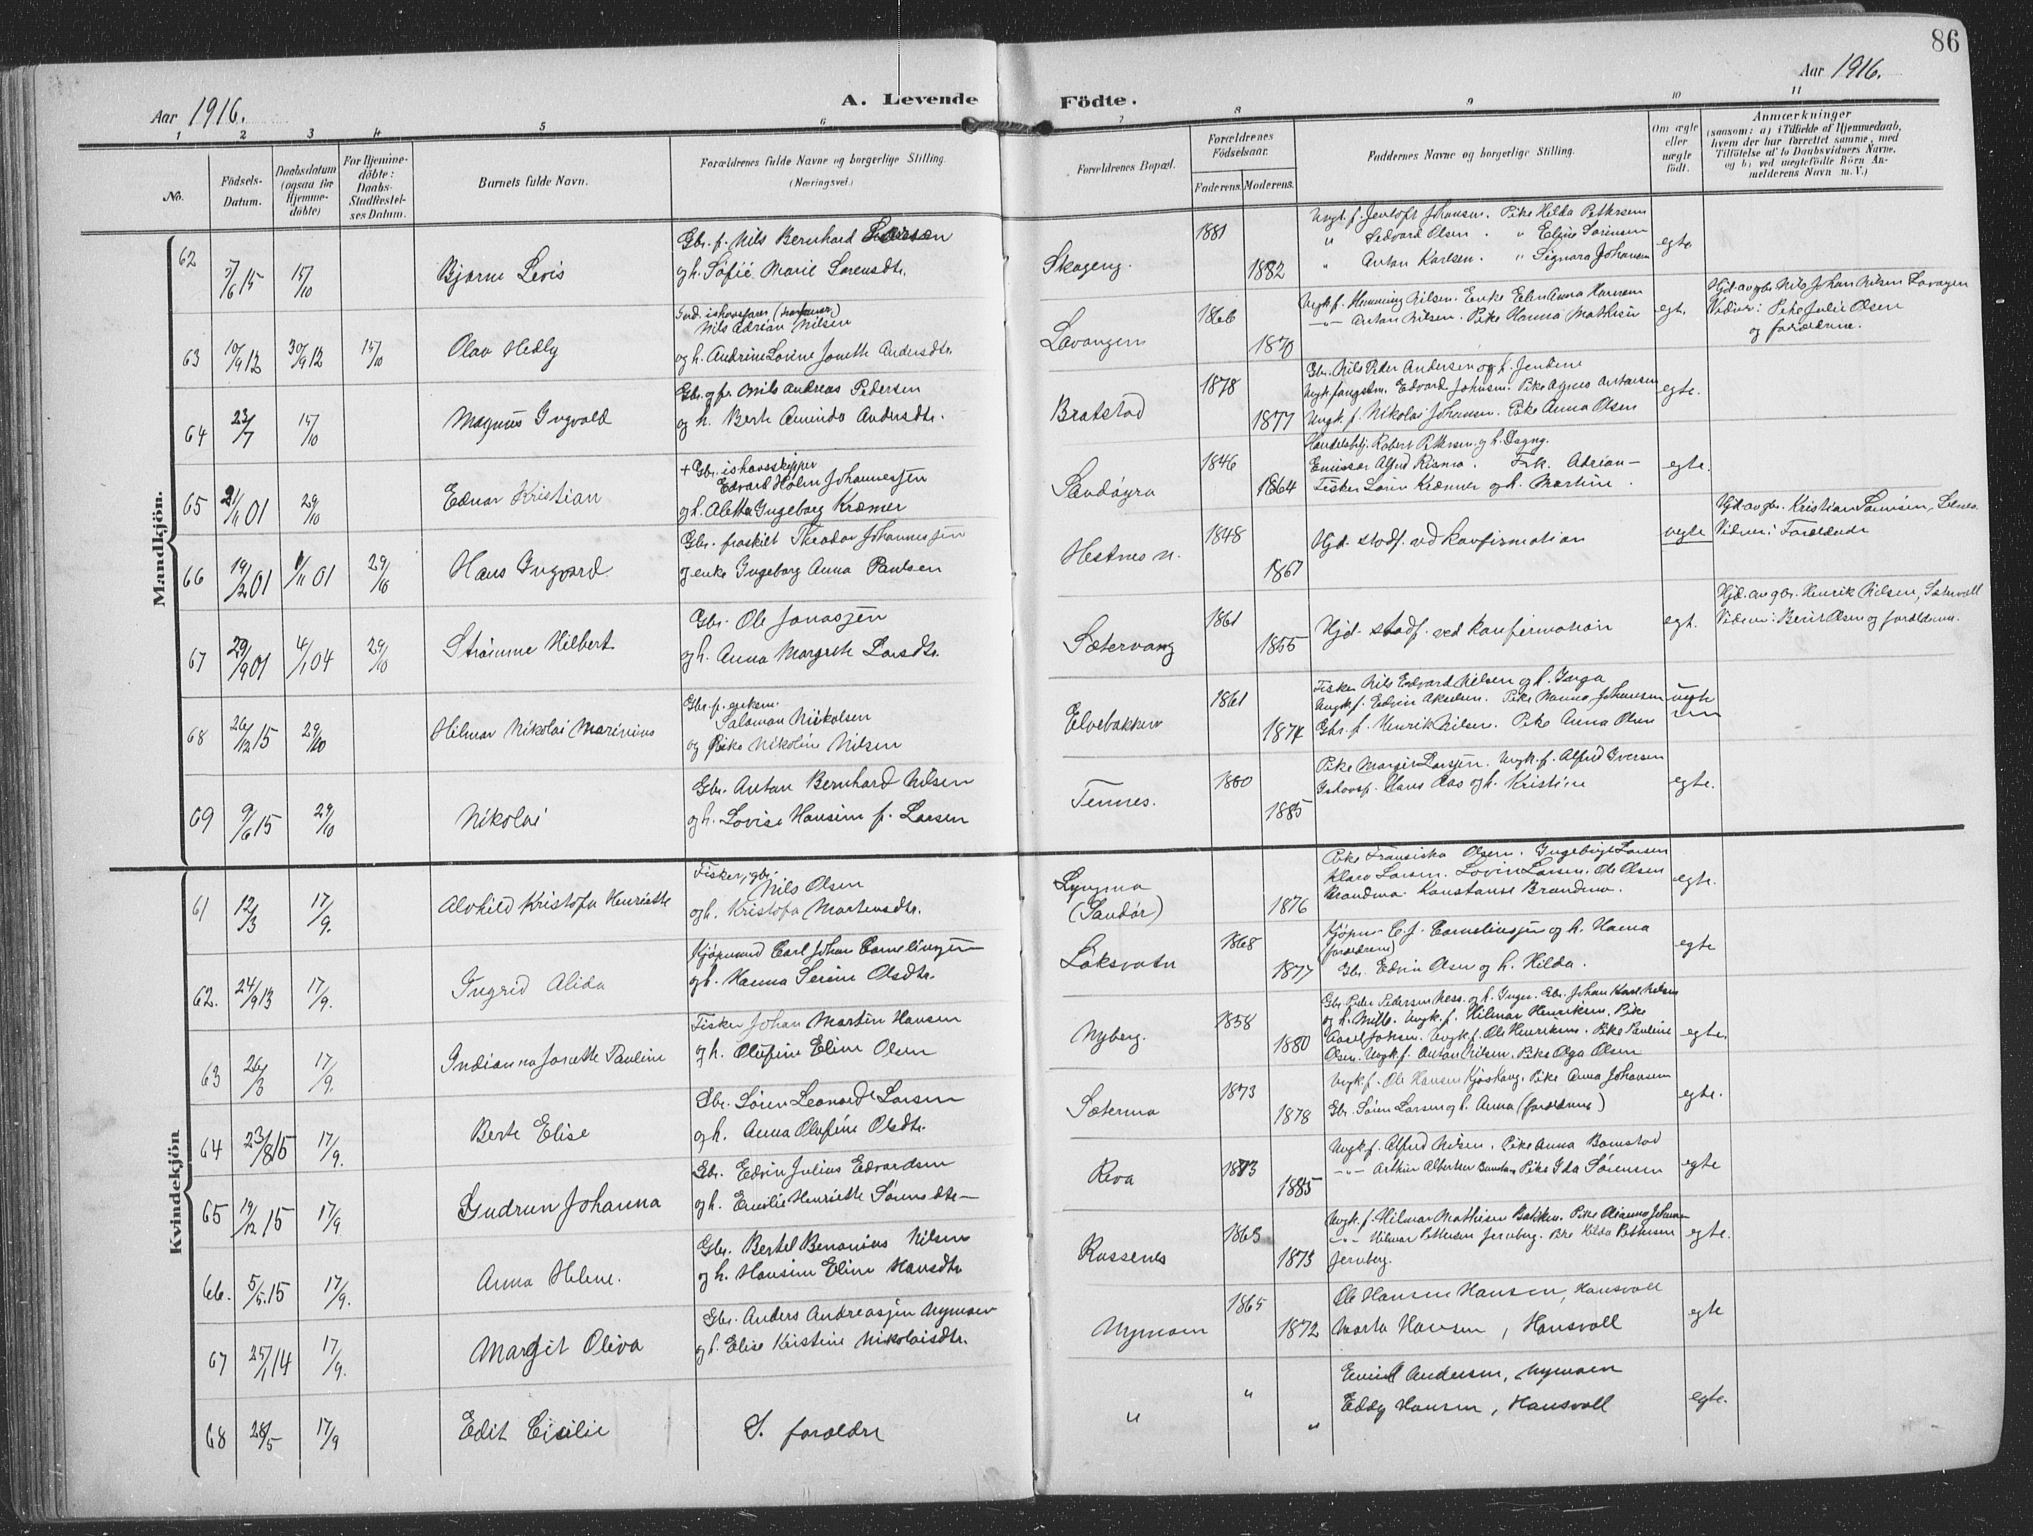 86
Aar 1916.
A. Levende Födte.
Aar 1916.
1 2 3 4 5 6 7 8 9 10 11
No.
Födsels-Datum.
Daabsdatum (ogsaa for Hjemme-döbte)
For Hjemme-döbte: Daabs-Stadfæstel-ses Datum.
Barnets fulde Navn.
Forældrenes fulde Navne og borgerlige Stilling.
(Næringsvei.)
Forældrenes Bopæl.
Forældrenes Födselsaar.
Faderens. Moderens.
Faddernes Navne og borgerlige Stilling.
Om ægte eller uægte födt.
Anmærkninger
(saasom: a) i Tilfælde af Hjemmedaab, hvem der har forrettet samme, med Tilföielse af to Daabsvidners Navne, og b) ved uegtefödte Börn An-melderens Navn m. V.)
Mandkjön.
62 7/6 15 15/10 Bjarne Levis
Gbr. f. Nils Bernhard Larsen
og h. Sofie Marie Sørensdtr.
Skogeng. 1881 1882
Ungk. f. Jentoft Johansen. Pike Hilda Pettersen
" Sedvard Olsen. " Eline Sørensen
" Anton Karlsen. " Signora Johansen
egte
63 10/9 12 30/9 12 15/10 Olav Hedly
Nils Adrian Nilsen
og h. Andrine Lovine Jonette Andersdtr.
Lavangen 1866 1870
Ungk. f. Henning Nilsen. Enke Elen Anna Hansen
-"- Anton Nilsen. Pike Hanna Mathisen
egt.
Hjd. av gbr. Nils Johan Nilsen Lavangen
Vidner: Pike Julie Olsen
og forældrene.
64 23/7 15/10 Magnus Ingvald
Gbr. og f. Nils Andreas Pedersen
og h. Berte Aminda Andersdtr.
Bratstad 1878 1877
Gbr. Nils Peder Andersen og h. Jendine
Ungk. fangstm. Edvard Johnsen. Pike Agnes Antonsen
Ungk. f. Nikolai Johansen. Pike Anna Olsen
egte.
65 21/11 01 29/10 Edvar Kristian
+ Gbr. ishavsskipper
Edvard Holm Johannessen
og h. Aletta Ingeborg Kræmer
Sandøyra 1846 1864
Handelsbtj. Robert Pettersen og h. Dagny.
Emissær Alfred Rismo. Frk. Adrian-
Fisker Søren Kræmer og h. Martine.
egte.
66 19/2 01 1/11 01 29/10 Hans Ingvard
Gbr. fraskilt Theodor Johannessen
og enke Ingeborg Anna Paulsen
Hestnes n. 1848 1861
Hjd. stadf. ved konfirmation
uegte
Hjd. av gbr. Kristian Sørensen,
Vidner: Forældrene
67 29/9 01 4/1 04 29/10 Strømme Hilbert
Gbr. Ole Jonassen
og h. Anna Margrete Larsdtr.
Sætervang 1861 1855
Hjd. stadf. ved konfirmation
egt.
Hjd. av gbr. Henrik Nilsen,
Vidner: Berit Olsen og forældrene.
68 26/12 15 29/10 Hilmar Nikolai Marinius
Gbr. f. enkem.
Salamon Nikolsen
og Pike Nikoline Nilsen
Elvebakken 1861 1874
Fisker Nils Edvard Nilsen og h. Inga
Ungk. f. Edvin Akselsen. Pike Hanna Johansen
Gbr. f. Henrik Nilsen. Pike Anna Olsen
uegte
69 9/6 15 29/10 Nikolai
Gbr. Anton Bernhard Nilsen
og h. Lovise Hansine f. Larsen
Tennes. 1880 1885
Pike Margit Larsen. Ungk. f. Alfred Iversen
Hans Aas og h. Kristine
egte.
Kvindekjön
61 12/3 17/9. Alvhild Kristofa Henriette
Fisker, gbr.
Nils Olsen
og h. Kristofa Martensdtr.
Lyngmo
(Sandør) 1876
Pike Fransiska Olsen. Ingeborg Larsen
Klara Larsen. Lovin Larsen. Ole Olsen
Brandmo. Konstanse Brandmo.
egte.
62. 24/9 13 17/9. Ingrid Alida
Kjøpmand Carl Johan Corneliussen
og h. Hanna Serine Olsdtr.
Løksvatn 1868 1877
Kjøpm. C. J. Corneliussen og h. Hanna
(forældrene)
Gbr. Edvin Olsen og h. Hilda.
egte
63 26/3 17/9. Indianna Jonette Pauline
Fisker Johan Martin Hansen
og h. Olufine Eline Olsen
Nyberg. 1858 1880
Gbr. Peder Pedersen Ness. og h. Inger. Gbr. Johan Karl Nilsen
og h. Mille. Ungk. f. Hilmar Henriksen. Pike
Aasel Johnsen. Ungk. f. Ole Henriksen. Pike Pauline
Olsen. Ungk. f. Anton Nilsen. Pike Olga Olsen
egte.
64 23/8 15 17/9. Berte Elise
Gbr. Søren Leonard Larsen
og h. Anna Olufine Olsdtr.
Sætermo 1873 1878
Ungk. f. Ole Hansen Kjosvang. Pike Anna Johansen
Gbr. Søren Larsen og h. Anna (forældrene)
egte.
65 19/12 15 17/9 Gudrun Johanna
Gbr. Edvin Julius Edvardsen
og h. Emilie Henriette Sørensdtr-
Reva 1883 1885
Ungk. f. Alfred Nilsen. Pike Anna Bomstad
-"- Arthur Albertsen Pike Ida Sørensen
egte
66. 5/5 15 17/9. Anna Helene.
Gbr. Bertel Benonius Nilsen
og h. Hansine Eline Hansdtr.
Rossenes 1863 1873
Ungk. f. Hilmar Mathisen Bakken. Pike Johansen
-"- Hilmar Pettersen Jernberg. Pike Hilda Pettersen
Jernberg.
egte.
67 25/1 14 17/9. Margit Oliva
Gbr. Anders Andreassen Nymoen
og h. Elise Kristine Nikolaisdtr.
Nymoen 1865 1872
Ole Hansen Hansen, Hansvoll
Marta Hansen, Hansvoll
egte
68 28/5 17/9 Edit Cicilie
S. foreldre
" " "
Emil Andersen, Nymoen
Eddy Hansen, Hansvoll
egte.